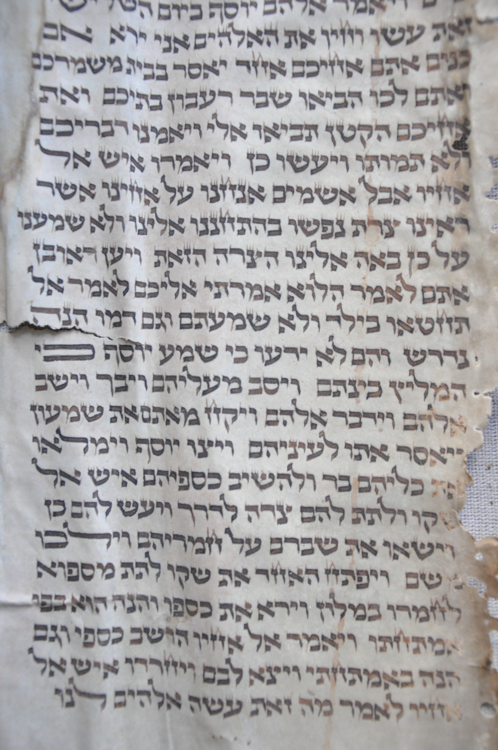 ויאמר אלהם יוסף ביום
זאת עשו וחיו את האלהים אני ירא אם
כנים אתם אחיכם אחד יאסר בבית משמרכם
אתם לכו הביאו שבר רעבון בתיכם ואת
אחיכם הקטן תביאו אלי ויאמנו דבריכם
ולא תמותו ויעשו כן ויאמרו איש אל
אחיו אבל אשמים אנחנו על אחינו אשר
ראינו צרת נפשו בהתחננו אלינו ולא שמענו
על כן באה אלינו הצרה הזאת ויען ראובן
אתם לאמר הלוא אמרתי אליכם לאמר אל
תחטאו בילד ולא שמעתם וגם דמו הנה
נדרש והם לא ידעו כי שמע יוסף כי
המליץ בינתם ויסב מעליהם ויבך וישב
אלהם וידבר אלהם ויקח מאתם את שמעון
ויאסר אתו לעיניהם ויצו יוסף וימלאו
כליהם בר ולהשיב כספיהם איש אל
קו ולתת להם צדה לדרך ויעש להם כן
וישאו את שברם על חמריהם וילכו
שם ויפתח האחד את שקו לתת מספוא
לחמרו במלון וירא את כספו והנה הוא בפי
אמתחתו ויאמר אל אחיו הושב כספי וגם
הנה באמתחתי ויצא לבם ויחרדו איש אל
אחיו לאמר מה זאת עשה אלהים לנו